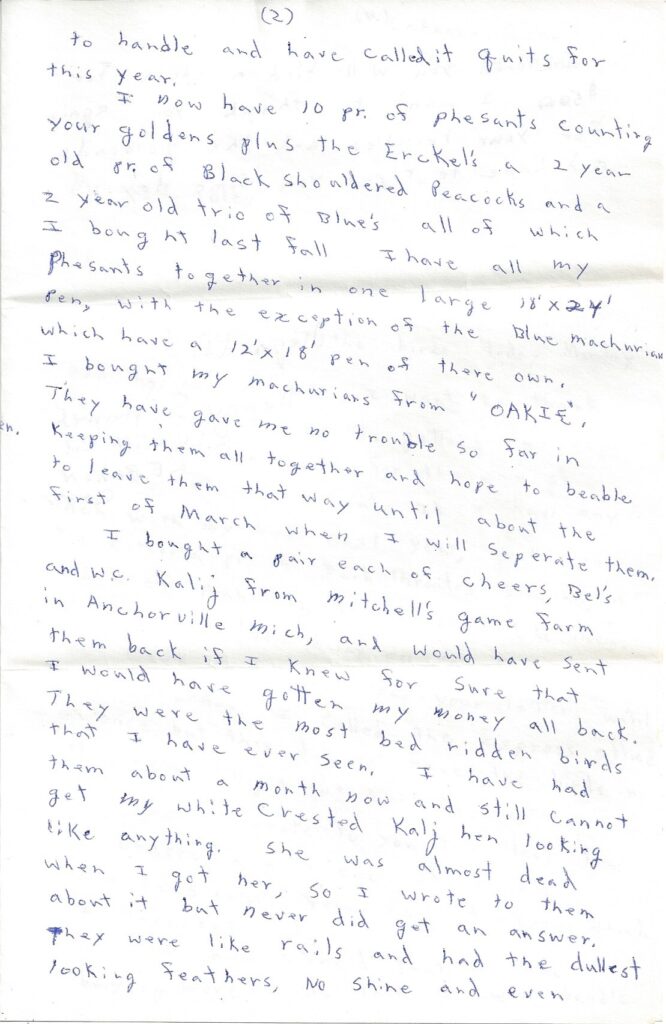 (2)
to handle and have called it quits for
this year.
I now have 10 pr. of phesants counting
your goldens plus the Erckel's a 2 year
old pr. of Black shouldered Peacocks and a
2 year old trio of Blue's all of which
I bought last fall I have all my
Phesants together in one large 18' x 24'
Pen, with the exception of the Blue machurian
which have a 12' x 18' pen of there own.
I bought my machurians from "OAKIE".
They have gave me no trouble so far in
en. Keeping them all together and hope to beable
to leave them that way until about the
first of March when I will seperate them.
I bought a pair each of cheers, Bel's
and W.C. Kalij from Mitchell's game farm
in Anchorville Mich, and would have sent
them back if I knew for sure that
I would have gotten my money all back.
They were the most bed ridden birds
that I have ever seen. I have had
them about a month now and still cannot
get my white Crested Kalj hen looking
like anything. She was almost dead
when I got her, so I wrote to them
about it but never did get an answer.
They were like rails and had the dullest
looking feathers, No shine and even